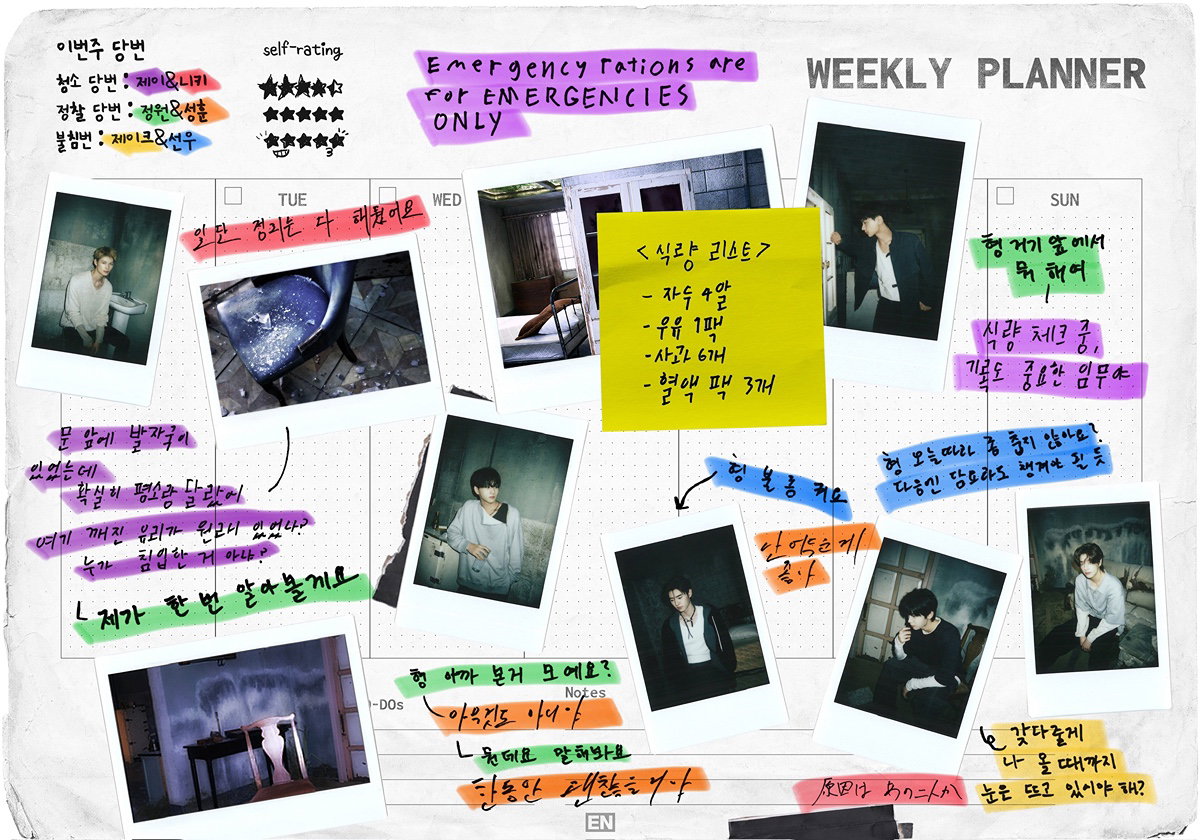 이번주 당번
self-rating
청소 당번 : 제이&니키
정찰 당번 : 정원&성훈
불침번 : 제이크&선우
Emergency rations are
for EMERGENCIES
ONLY
WEEKLY PLANNER
TUE
WED
SUN
일단 정리는 다 해뒀어요
<식량 리스트>
- 자두 4알
- 우유 1팩
- 사과 6개
- 혈액 팩 3개
형 거기 앞에서
뭐 해여
식량 체크 중,
기록도 중요한 임무야
문 앞에 발자국이
있었는데
확실히 평소랑 달랐어
여기 깨진 유리가 원래 있었나?
누가 침입한 거 아냐?
ㄴ 제가 한 번 알아볼게요
형 불 좀 켜요
안 어두운게
좋아
형 오늘따라 좀 춥지 않아요?
다음엔 담요라도 챙겨야 될 듯
형 아까 본거 모예요?
아무것도 아니야
ㄴ 뭔데요 말해봐요
한동안 괜찮을거야
O-DOs
Notes
原因はあの二人か
갖다줄게
나 올 때까지
눈은 뜨고 있어야 해?
EN